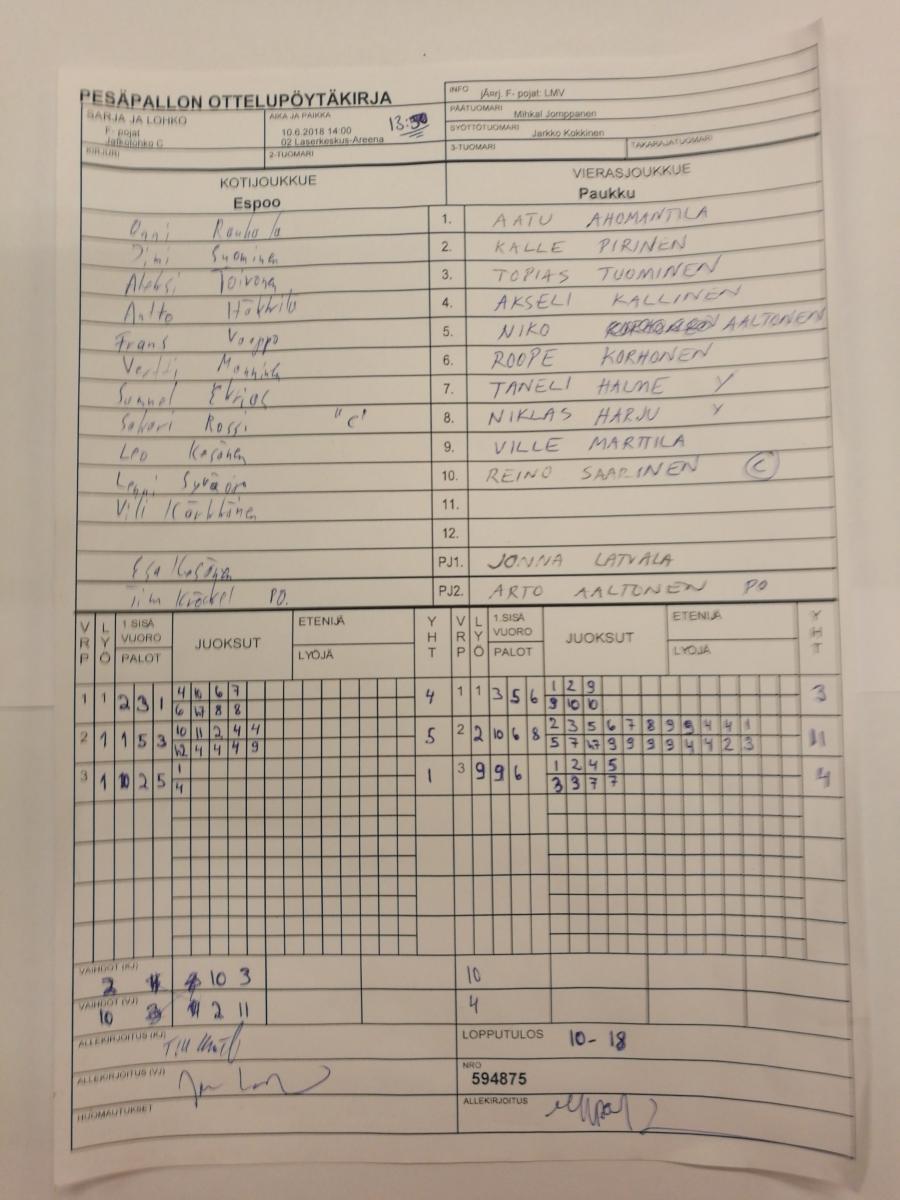 PESÄPALLON OTTELUPÖYTÄKIRJA
SARJA JA LOHKO
F- pojat
Jatkolohko C
AIKA JA PAIKKA 13:30
10.6.2018 14:00
02 Laserkeskus-Areena
INFO jÄrj. F- pojat: LMV
PÄÄTUOMARI Mihkal Jomppanen
SYÖTTÖTUOMARI Jarkko Kokkinen
KIRJURI 2-TUOMARI 3-TUOMARI TAKARAJATUOMARI
KOTIJOUKKUE VIERASJOUKKUE
Espoo Paukku
Onni 1. AATU AHOMANTILA
Jimi Suominen 2. KALLE PIRINEN
Aleksi Toivonen 3. TOPIAS TUOMINEN
Aatto 4. AKSELI KALLINEN
Frans 5. NIKO AALTONEN
Vertti Manninen 6. ROOPE KORHONEN
7. TANELI HALME Y
Sakari Rossi "C" 8. NIKLAS HARJU Y
Leo Kesänen 9. VILLE MARTTILA
Lenni 10. REINO SAARINEN C
Vili Kärkkäinen 11.
12.
Esa Kesänen PJ1. JONNA LATVALA
PO. PJ2. ARTO AALTONEN PO
VRP LYÖ 1.SISÄ VUORO PALOT JUOKSUT ETENIJÄ LYÖJÄ YHT VRP LYÖ 1.SISÄ VUORO PALOT JUOKSUT ETENIJÄ LYÖJÄ YHT
1 1 2 3 1 4 10 6 7 4 1 1 3 5 6 1 2 9 3
6 8 8 9 10 10
2 1 1 5 3 10 11 2 4 4 5 2 2 10 6 8 2 3 5 6 7 8 9 9 4 4 1 11
4 4 4 9 5 7 9 9 9 9 4 4 2 3
3 1 10 2 5 1 1 3 9 9 6 1 2 4 5 4
4 3 3 7 7
VAIHDOT (KJ) 2 10 3 10
VAIHDOT (VJ) 10 2 11 4
ALLEKIRJOITUS (KJ) LOPPUTULOS 10-18
ALLEKIRJOITUS (VJ) NRO
594875
HUOMAUTUKSET ALLEKIRJOITUS